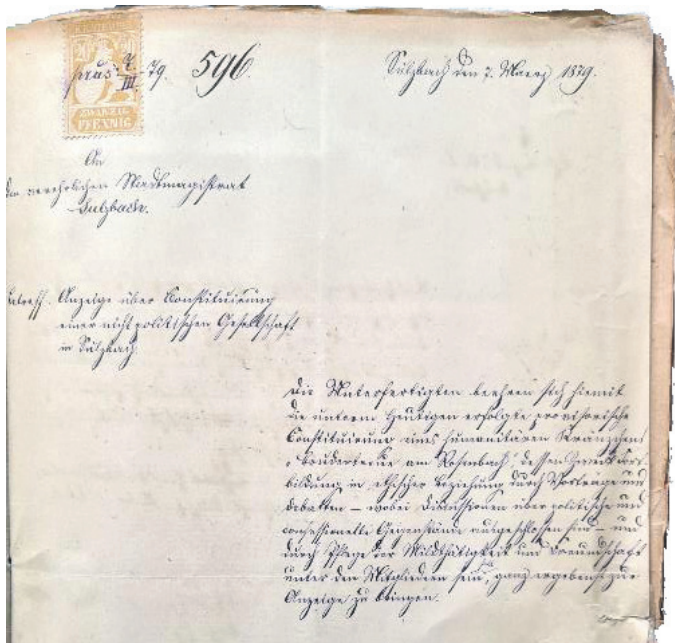 ZWANZIG
PFENNIG
präs. 7/III. 79. 596. Sulzbach den 7. Maerz 1879.
An
den verehrlichen Stadtmagistrat
Sulzbach.
Betreff. Anzeige über Constituirung
einer nicht politischen Gesellschaft
in Sulzbach.
Die Unterfertigten beehren sich hiemit
die unterm Heutigen erfolgte provisorische
Constituirung eines humanitären Kränzchens
„Brudertreue am Rosenbach", dessen Zweck Fort-
bildung in ethischer Beziehung durch Vorträge und
Debatten – wobei Diskussionen über politische und
confessionelle Gegenstände ausgeschlossen sind – und
durch Pflege der Mildthätigkeit und Freundschaft
unter den Mitgliedern sein, ganz ergebenst zur
Anzeige zu bringen.